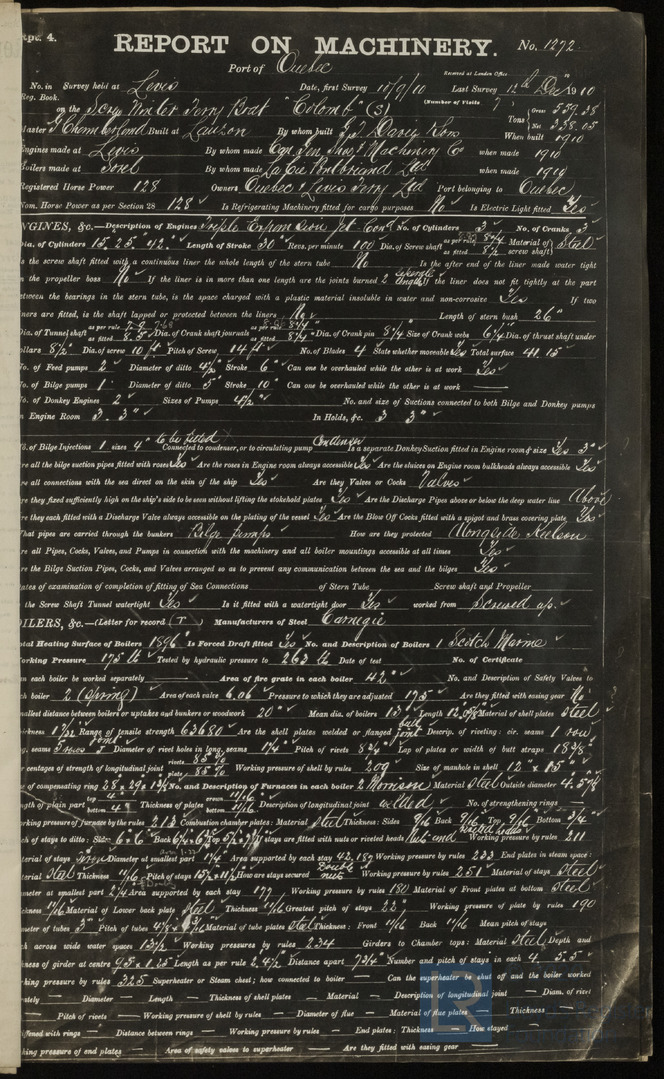 Rpt. 4.
REPORT ON MACHINERY. No. 1272
Port of Quebec
Received at London Office
No. in Survey held at Levis Date, first Survey 10/9/10 Last Survey 12th Dec 1910
Reg. Book. (Number of Visits 7
on the Screw Winter Ferry Boat "Colomb" (3) Tons Gross 559.28 Net 338.03
Master Built at Lauzon By whom built G. T. Davie & Sons When built 1910
Engines made at Levis By whom made Can Gen Shops & Machinery Co when made 1910
Boilers made at Sorel By whom made La Cie Pontbriand Ltd when made 1910
Registered Horse Power 128 Owners Quebec & Levis Ferry Ltd Port belonging to Quebec
Nom. Horse Power as per Section 28 128 Is Refrigerating Machinery fitted for cargo purposes No Is Electric Light fitted Yes
ENGINES, &c.—Description of Engines Triple Expansion No. of Cylinders 3 No. of Cranks 3
Dia. of Cylinders 15. 25. 42. Length of Stroke 30 Revs. per minute 100 Dia. of Screw shaft as per rule as fitted 8 1/2 Material of screw shaft Steel
Is the screw shaft fitted with a continuous liner the whole length of the stern tube No Is the after end of the liner made water tight
in the propeller boss No If the liner is in more than one length are the joints burned 2 lengths If the liner does not fit tightly at the part
between the bearings in the stern tube, is the space charged with a plastic material insoluble in water and non-corrosive Yes If two
liners are fitted, is the shaft lapped or protected between the liners No Length of stern bush 26"
Dia. of Tunnel shaft as per rule as fitted Dia. of Crank shaft journals as per rule as fitted 8 1/4 Dia. of Crank pin 8 1/4 Size of Crank webs 6 1/4 Dia. of thrust shaft under
collars 8 1/2 Dia. of screw 10 ft Pitch of Screw 14 ft No. of Blades 4 State whether moveable Yes Total surface 41.15
No. of Feed pumps 2 Diameter of ditto 4 1/2 Stroke 6" Can one be overhauled while the other is at work Yes
No. of Bilge pumps 1 Diameter of ditto 5" Stroke 10" Can one be overhauled while the other is at work —
No. of Donkey Engines 2 Sizes of Pumps 4 1/2" No. and size of Suctions connected to both Bilge and Donkey pumps
In Engine Room 3. 3" In Holds, &c. 3 3"
No. of Bilge Injections 1 sizes 4" to be fitted Connected to condenser, or to circulating pump Condenser Is a separate Donkey Suction fitted in Engine room & size Yes 3"
Are all the bilge suction pipes fitted with roses Yes Are the roses in Engine room always accessible Yes Are the sluices on Engine room bulkheads always accessible Yes
Are all connections with the sea direct on the skin of the ship Yes Are they Valves or Cocks Valves
Are they fixed sufficiently high on the ship's side to be seen without lifting the stokehold plates Yes Are the Discharge Pipes above or below the deep water line Above
Are they each fitted with a Discharge Valve always accessible on the plating of the vessel Yes Are the Blow Off Cocks fitted with a spigot and brass covering plate Yes
What pipes are carried through the bunkers Bilge Pumps How are they protected Alongside Keelson
Are all Pipes, Cocks, Valves, and Pumps in connection with the machinery and all boiler mountings accessible at all times Yes
Are the Bilge Suction Pipes, Cocks, and Valves arranged so as to prevent any communication between the sea and the bilges Yes
Dates of examination of completion of fitting of Sea Connections of Stern Tube Screw shaft and Propeller
Is the Screw Shaft Tunnel watertight Yes Is it fitted with a watertight door Yes worked from Screwed up.
BOILERS, &c.—(Letter for record (T) Manufacturers of Steel Carnegie
Total Heating Surface of Boilers 1896 Is Forced Draft fitted Yes No. and Description of Boilers 1 Scotch Marine
Working Pressure 175 lb Tested by hydraulic pressure to 263 lb Date of test No. of Certificate
Can each boiler be worked separately — Area of fire grate in each boiler 42" No. and Description of Safety Valves to
each boiler 2 (Spring) Area of each valve 6.06 Pressure to which they are adjusted 175 Are they fitted with easing gear No
Smallest distance between boilers or uptakes and bunkers or woodwork 20" Mean dia. of boilers 13 Length Material of shell plates Steel
Thickness 1 7/32 Range of tensile strength 63680 Are the shell plates welded or flanged butt joint Descrip. of riveting: cir. seams 1 row
long. seams Diameter of rivet holes in long. seams 1 1/4" Pitch of rivets 8 3/4 Lap of plates or width of butt straps 18 3/8"
Per centages of strength of longitudinal joint rivets 85% plate 85% Working pressure of shell by rules 209 Size of manhole in shell 12" x 15"
Size of compensating ring 28 x 29 x 1 3/4 No. and Description of Furnaces in each boiler 2 Morrison Material Steel Outside diameter
Length of plain part top bottom Thickness of plates crown bottom 11/16 Description of longitudinal joint welded No. of strengthening rings —
Working pressure of furnace by the rules 213 Combustion chamber plates: Material Steel Thickness: Sides 9/16 Back 9/16 Top 9/16 Bottom 3/4
Pitch of stays to ditto: Sides 6 x 6 Back Top If stays are fitted with nuts or riveted heads Nuts and riveted heads Working pressure by rules 211
Material of stays Iron Diameter at smallest part 1 1/4 Area supported by each stay 42.187 Working pressure by rules 233 End plates in steam space:
Material Steel Thickness 11/16 Pitch of stays How are stays secured Double nuts Working pressure by rules 251 Material of stays Steel
Diameter at smallest part 2 1/4 Area supported by each stay 177 Working pressure by rules 180 Material of Front plates at bottom Steel
Thickness 11/16 Material of Lower back plate Steel Thickness 11/16 Greatest pitch of stays 22" Working pressure of plate by rules 190
Diameter of tubes 3" Pitch of tubes Material of tube plates Steel Thickness: Front 11/16 Back 11/16 Mean pitch of stays
Pitch across wide water spaces 13 1/2 Working pressures by rules 234 Girders to Chamber tops: Material Steel Depth and
thickness of girder at centre 9.5 x 1.25 Length as per rule Distance apart 7 3/4 Number and pitch of stays in each 4. 5.5
Working pressure by rules 325 Superheater or Steam chest; how connected to boiler — Can the superheater be shut off and the boiler worked
separately — Diameter — Length — Thickness of shell plates — Material — Description of longitudinal joint — Diam. of rivet
holes — Pitch of rivets — Working pressure of shell by rules — Diameter of flue — Material of flue plates — Thickness —
If stiffened with rings — Distance between rings — Working pressure by rules — End plates: Thickness — How stayed —
Working pressure of end plates — Area of safety valves to superheater — Are they fitted with easing gear —